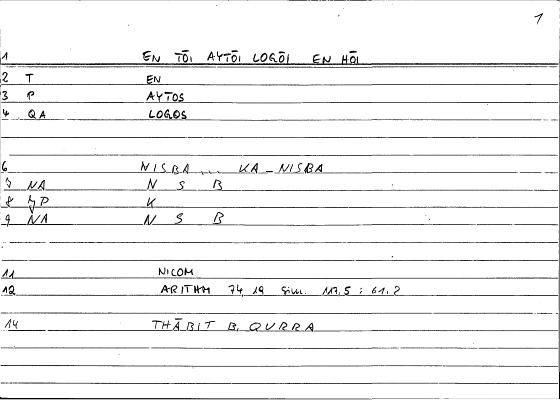 1
1 EN TŌI AYTŌI LOGŌI EN HŌI
2 T EN
3 P AYTOS
4 QA LOGOS
6 NISBA ... KA-NISBA
7 NA N S B
8 P K
9 NA N S B
11 NICOM
12 ARITHM 74, 19 sim. 117,5 ; 61.2
14 THĀBIT B. QURRA